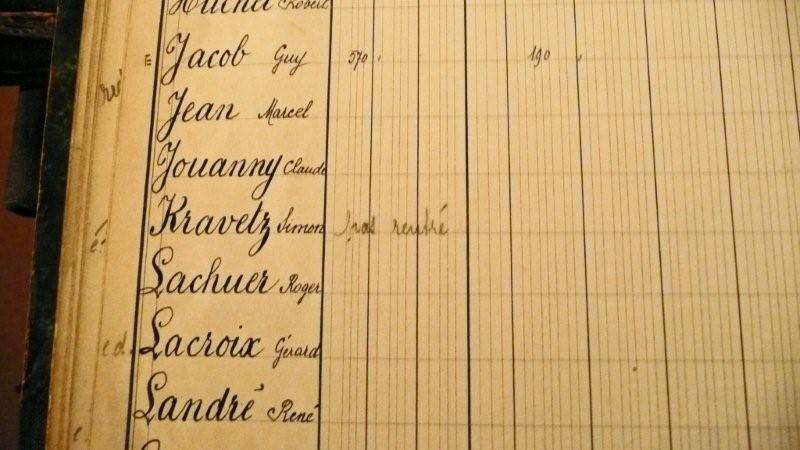 Robert
E Jacob Guy 570 190
Jean Marcel
Jouanny Claude
Kravetz Simon pas rentré
é.
Lachuer Roger
e d. Lacroix Gérard
Landré René